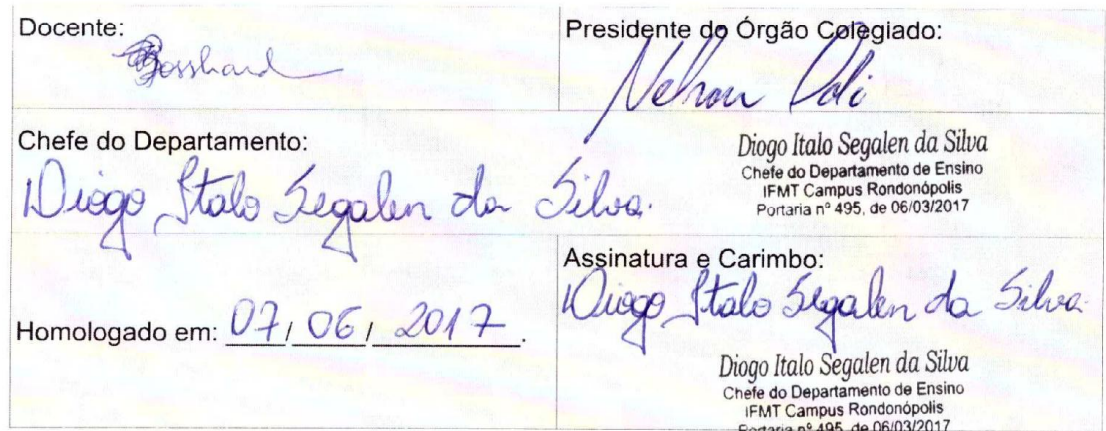 Docente:
Presidente do Órgão Colegiado:
Chefe do Departamento:
Diogo Italo Segalen da Silva.
Diogo Italo Segalen da Silva
Chefe do Departamento de Ensino
IFMT Campus Rondonópolis
Portaria nº 495, de 06/03/2017
Homologado em: 07/06/2017.
Assinatura e Carimbo:
Diogo Italo Segalen da Silva.
Diogo Italo Segalen da Silva
Chefe do Departamento de Ensino
IFMT Campus Rondonópolis
Portaria nº 495, de 06/03/2017